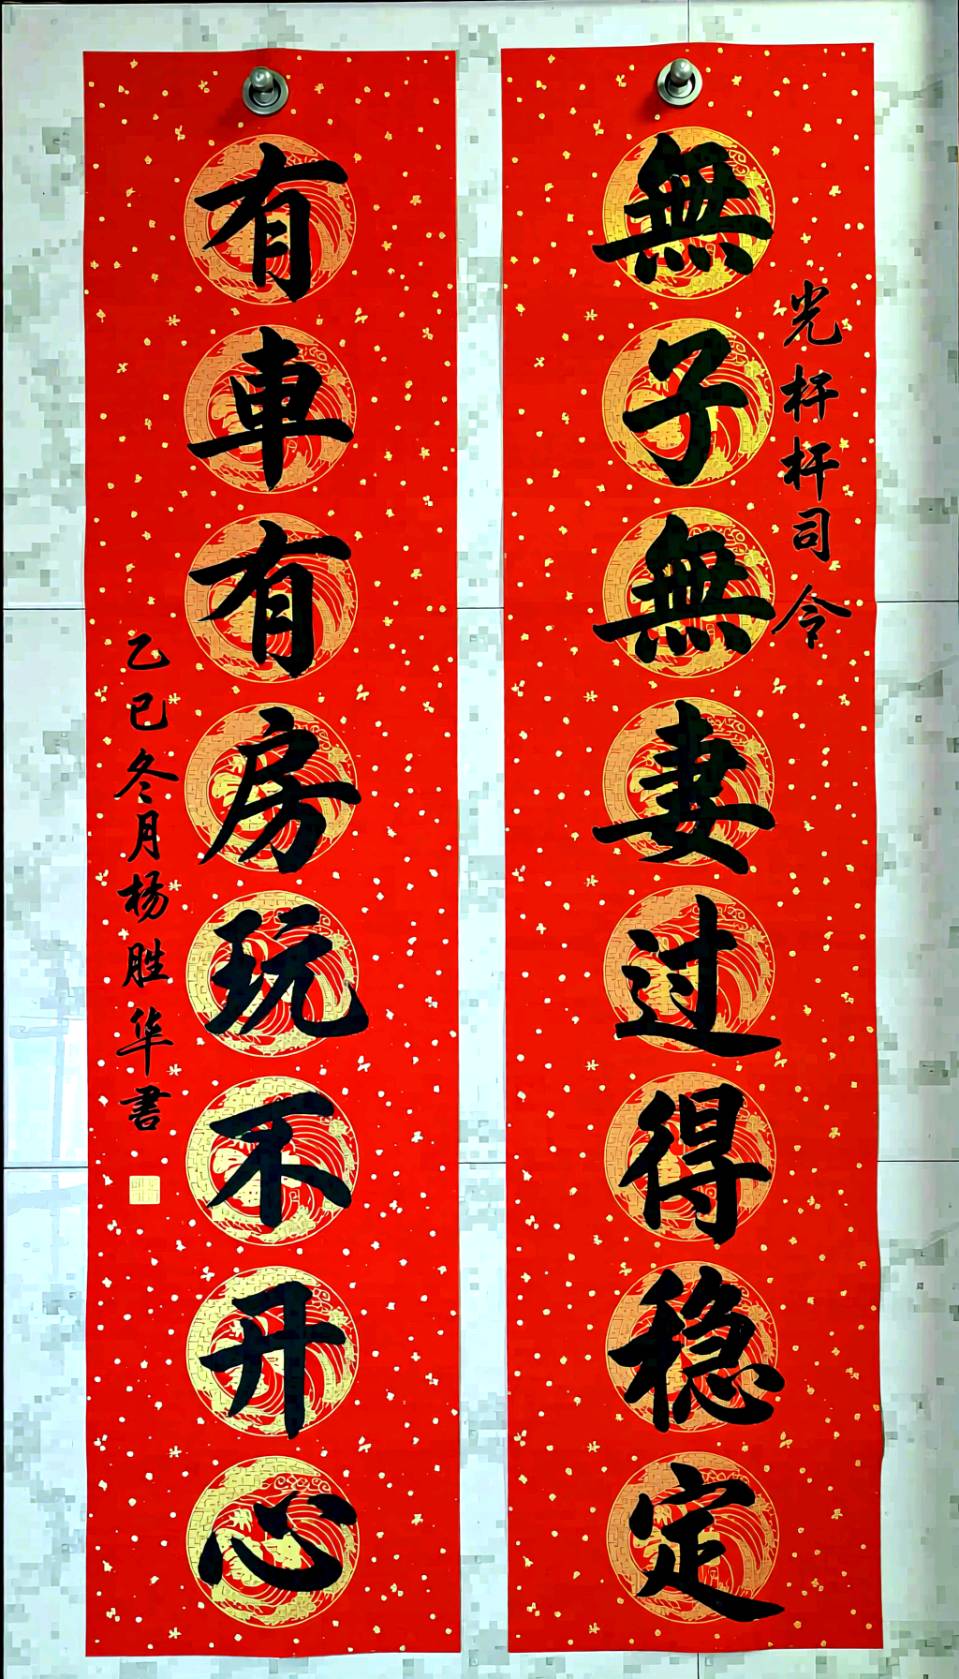 光杆杆司令
無子無妻过得稳定
有車有房玩不开心
乙巳冬月杨胜华書